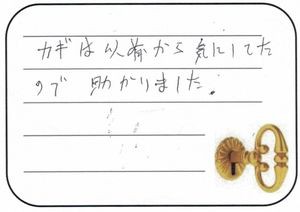 カギは以前から気にしてた
ので 助かりました.